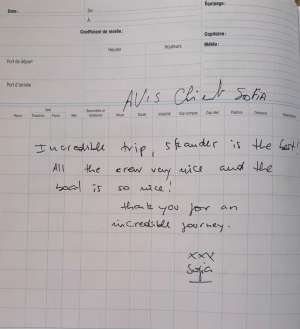 Date:
De
Équipage:
À
Coefficient de marée:
Capitaine:
Heures
Hauteurs
Météo:
Port de départ
Port d'arrivée
AVIS Client SOFIA
Incredible trip, Skander is the best!
All the crew very nice and the
boat is so nice!
thank you for an
incredible journey.
xxx
Sofia